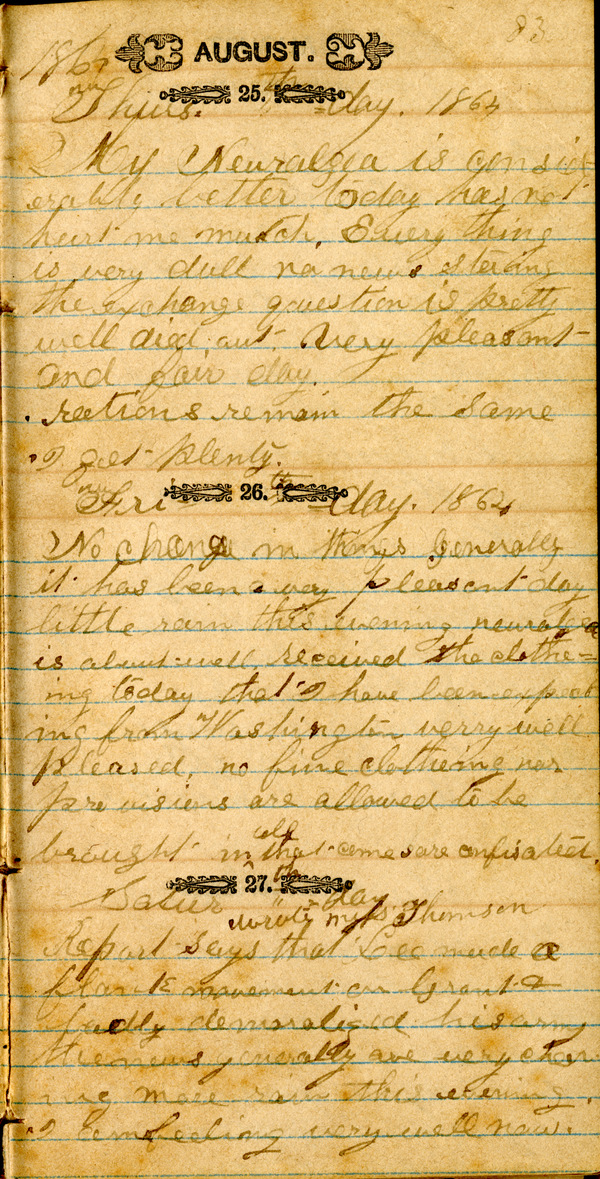 83
1864 AUGUST.
Thurs. 25.th =day. 1864
My Neuralgea is consid
erably better today has not
hurt me mutch. Every thing
is very dull no news stering
the exchange question is pretty
well died out. Very pleasant
and fair day.
reations remain the same
I get plenty.
Fri 26.th =day. 1864
No change in things generally
it has been a very pleasant day
little rain this evening neuralgea
is about well. received the clothe=
ing today that I have been expect
ing from Washington verry well
pleased, no fine clotheing nor
provisions are allowed to be
all
brought in that comes are confisated.
Satur 27.th =day
wrote Thomson
Report says that Lee made a
flank movement on Grant &
badly demoralized his army
the news generally are very chear
ing more rain this evening.
I am feeling very well now.